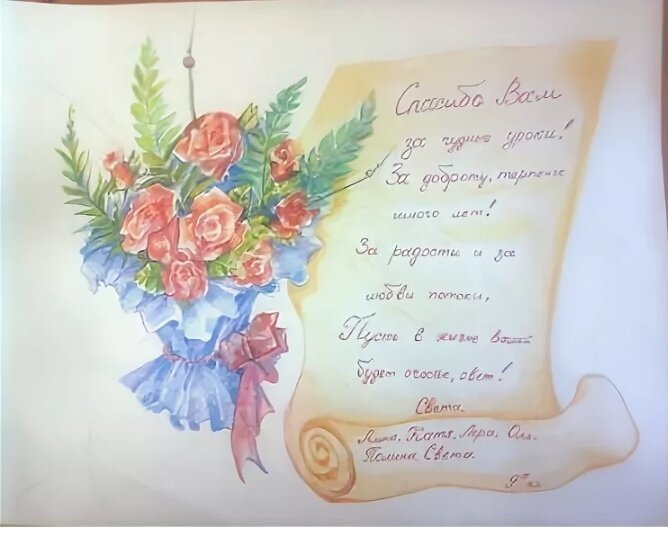 Спасибо Вам
за чудные уроки!
За доброту, терпенье
много лет!
За радость и за
любви потоки,
Пусть в жизни вашей
будет счастье, свет!
Света.
Катя, Лера, Оля,
Полина, Света.